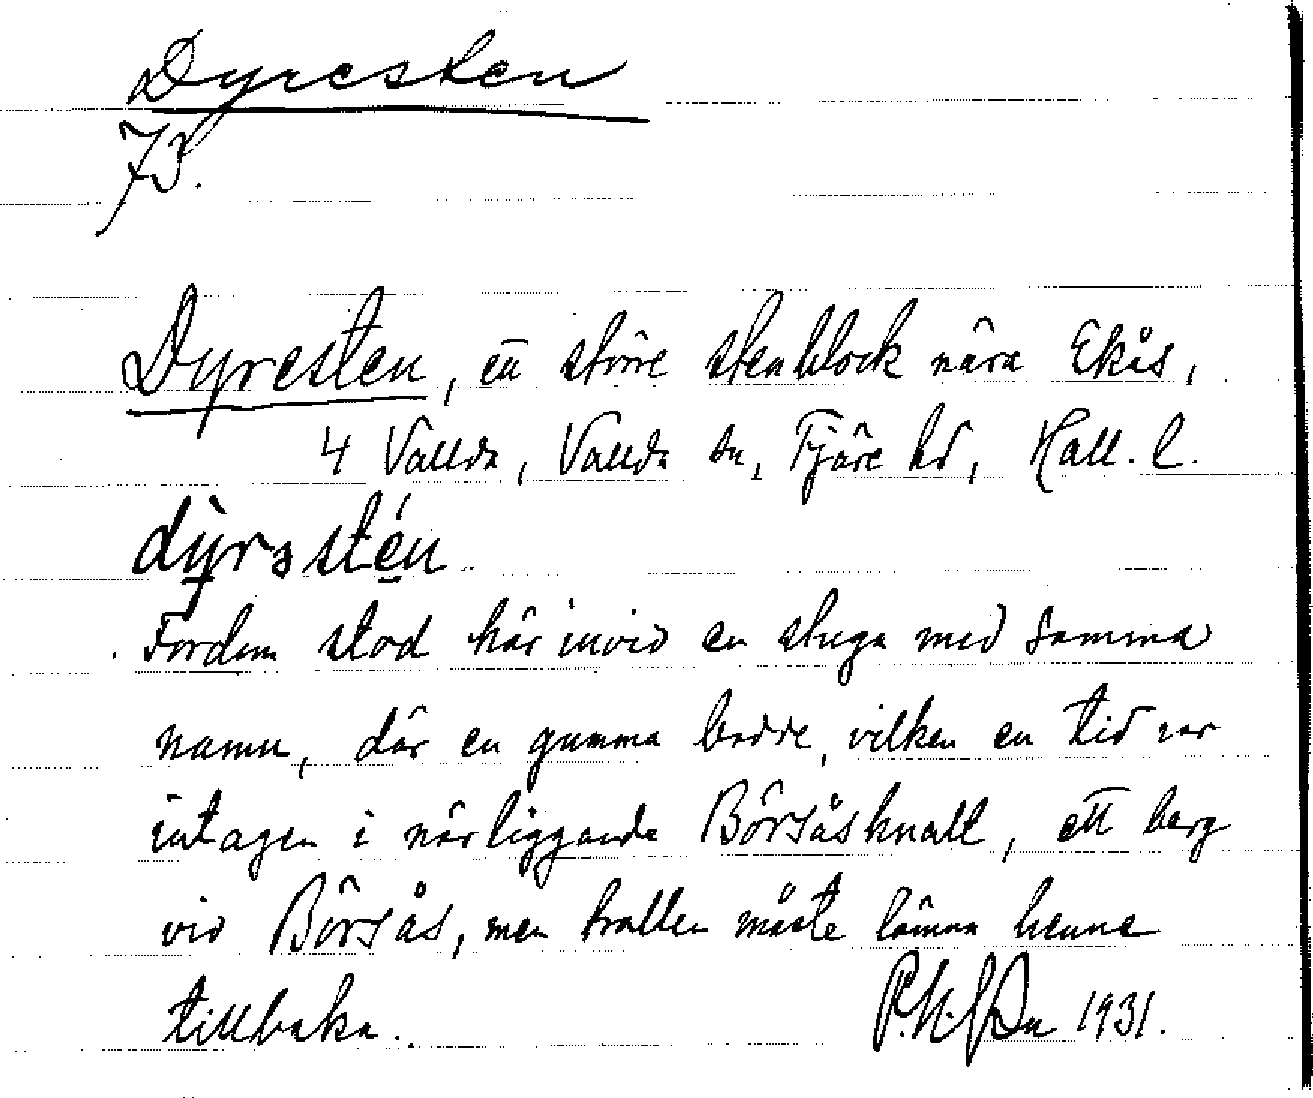 Dyresten
73.
Dyresten, en större stenblock nära Ekås,
4 Vallda, Vallda sn, Fjäre hd, Hall. l.
dỳrəstén
Fordom stod här invid en stuga med samma
namn, där en gumma bodde, vilken en tid var
intagen i närliggande Börsåsknall, ett berg
vid Börsås, men trollen måste lämna henne
tillbaka. 1931.